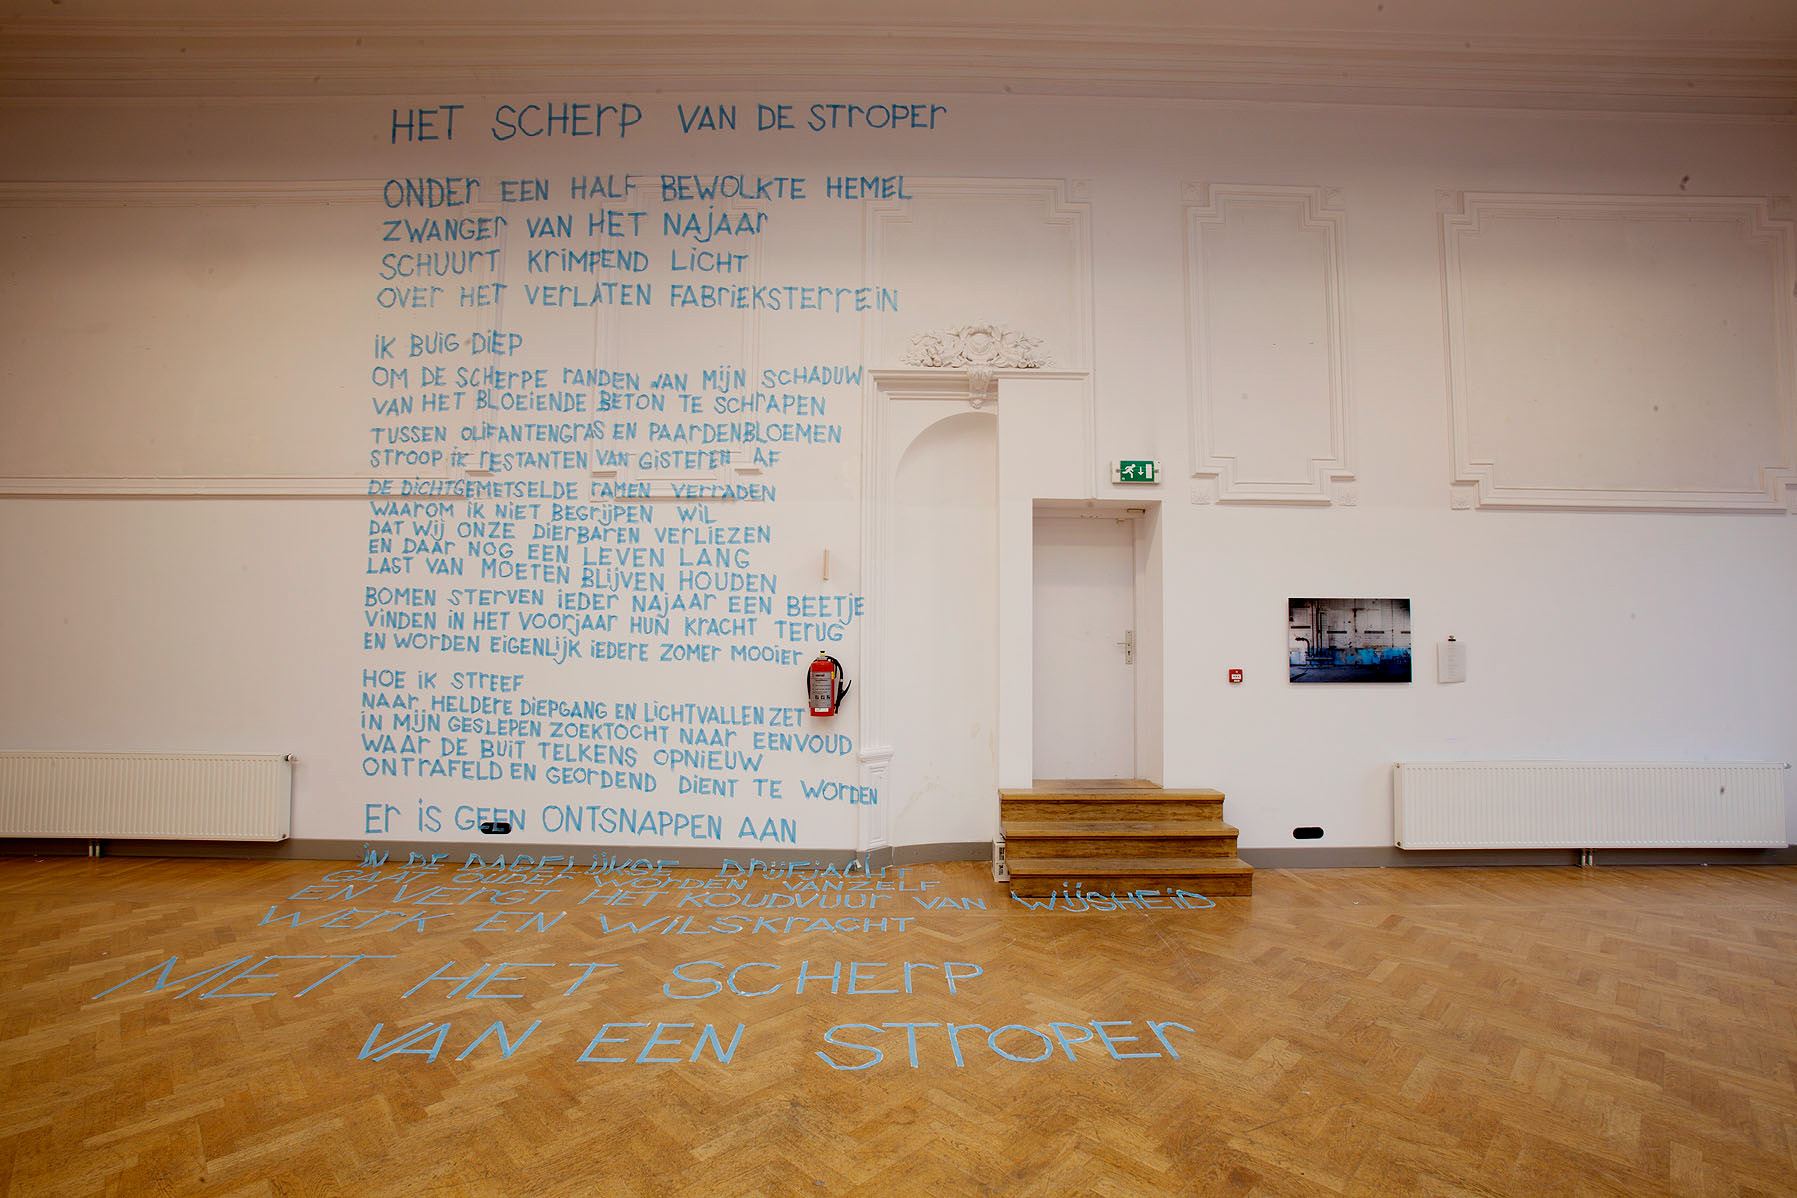 HET SCHERP VAN DE STROPER
ONDER EEN HALF BEWOLKTE HEMEL
ZWANGER VAN HET NAJAAR
SCHUURT KRIMPEND LICHT
OVER HET VERLATEN FABRIEKSTERREIN
IK BUIG DIEP
OM DE SCHERPE RANDEN VAN MIJN SCHADUW
VAN HET BLOEIENDE BETON TE SCHRAPEN
TUSSEN OLIFANTENGRAS EN PAARDENBLOEMEN
STROOP IK RESTANTEN VAN GISTEREN AF
DE DICHTGEMETSELDE RAMEN VERRADEN
WAAROM IK NIET BEGRIJPEN WIL
DAT WIJ ONZE DIERBAREN VERLIEZEN
EN DAAR NOG EEN LEVEN LANG
LAST VAN MOETEN BLIJVEN HOUDEN
BOMEN STERVEN IEDER NAJAAR EEN BEETJE
VINDEN IN HET VOORJAAR HUN KRACHT TERUG
EN WORDEN EIGENLIJK IEDERE ZOMER MOOIER
HOE IK STREEF
NAAR HELDERE DIEPGANG EN LICHTVALLEN ZET
IN MIJN GESLEPEN ZOEKTOCHT NAAR EENVOUD
WAAR DE BUIT TELKENS OPNIEUW
ONTRAFELD EN GEORDEND DIENT TE WORDEN
ER IS GEEN ONTSNAPPEN AAN
IN DE DAGELIJKSE DRIJFJACHT
GAAT OUDER WORDEN VANZELF
EN VERGT HET KOUDVUUR VAN WIJSHEID
WERK EN WILSKRACHT
MET HET SCHERP
VAN EEN STROPER